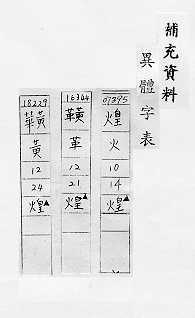 補充資料
異體字表
07395
煌
火
10
14
煌▲
16344
革
12
21
煌▲
18229
黃
12
24
煌▲